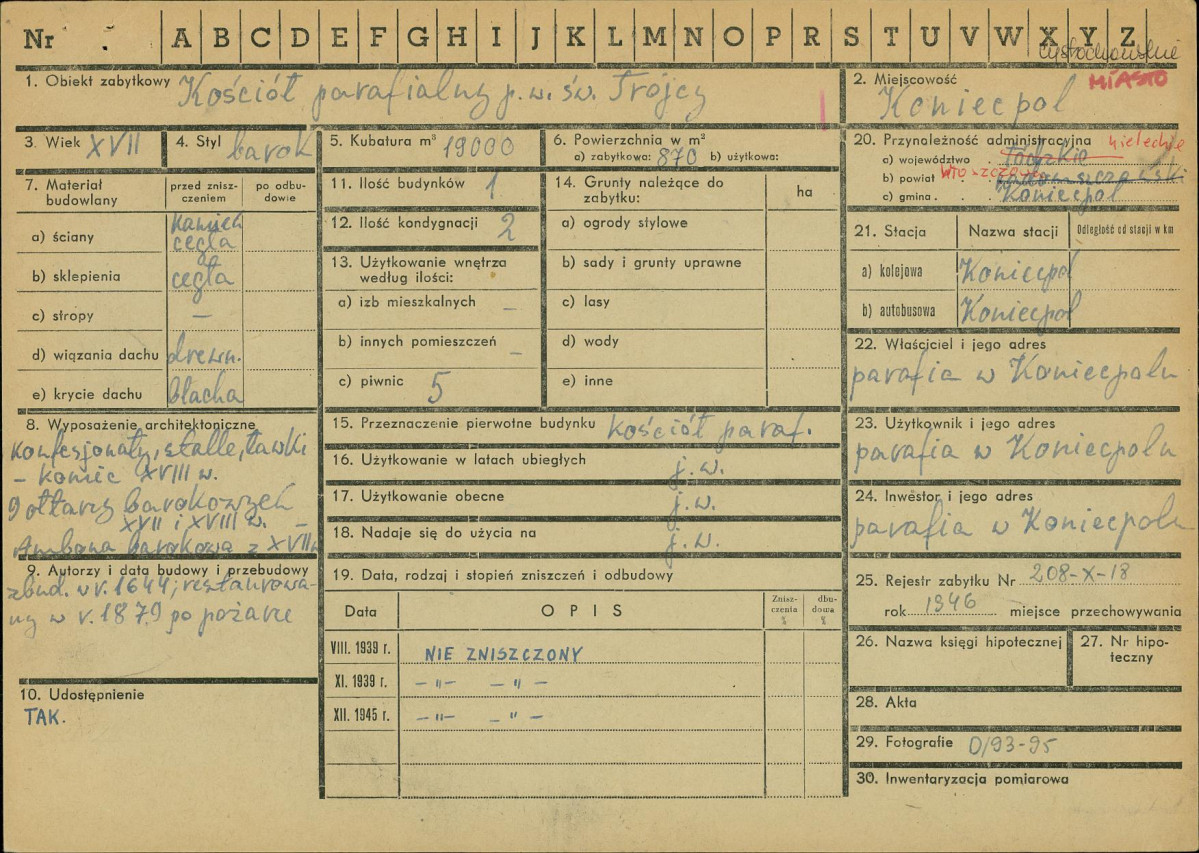 Nr A B C D E F G H I J K L M N O P R S T U V W X Y Z
częstochowskie
1. Obiekt zabytkowy Kościół parafialny p.w. św. Trójcy
2. Miejscowość MIASTO
Koniecpol
3. Wiek XVII
4. Styl barok
5. Kubatura m³ 19000
6. Powierzchnia w m²
a) zabytkowa: 870 b) użytkowa:
20. Przynależność administracyjna
a) województwo łódzkie kieleckie
b) powiat radomszczański
c) gmina Koniecpol
7. Materiał budowlany
przed znisz-
czeniem
po odbu-
dowie
a) ściany kamień
cegła
b) sklepienia cegła
c) stropy –
d) wiązania dachu drewn.
e) krycie dachu blacha
11. Ilość budynków 1
12. Ilość kondygnacji 2
13. Użytkowanie wnętrza
według ilości:
a) izb mieszkalnych –
b) innych pomieszczeń –
c) piwnic 5
14. Grunty należące do
zabytku:
ha
a) ogrody stylowe
b) sady i grunty uprawne
c) lasy
d) wody
e) inne
21. Stacja Nazwa stacji Odległość od stacji w km
a) kolejowa Koniecpol
b) autobusowa Koniecpol
22. Właściciel i jego adres
parafia w Koniecpolu
8. Wyposażenie architektoniczne
Konfesjonały, stalle, ławki
– koniec XVIII w.
9 ołtarzy barokowych
XVII i XVIII w. –
Ambona barokowa z XVII w
9. Autorzy i data budowy i przebudowy
zbud. w r. 1644; restaurowa-
ny w r. 1879 po pożarze
10. Udostępnienie
TAK.
15. Przeznaczenie pierwotne budynku kościół paraf.
16. Użytkowanie w latach ubiegłych j.w.
17. Użytkowanie obecne j.w.
18. Nadaje się do użycia na j.w.
19. Data, rodzaj i stopień zniszczeń i odbudowy
Data OPIS Znisz-
czenia
%
dbu-
dowa
%
VIII. 1939 r. NIE ZNISZCZONY
XI. 1939 r. –"– –"–
XII. 1945 r. –"– –"–
23. Użytkownik i jego adres
parafia w Koniecpolu
24. Inwestor i jego adres
parafia w Koniecpolu
25. Rejestr zabytku Nr 208-X-18
rok 1946 miejsce przechowywania
26. Nazwa księgi hipotecznej
27. Nr hipo-
teczny
28. Akta
29. Fotografie D/93-95
30. Inwentaryzacja pomiarowa